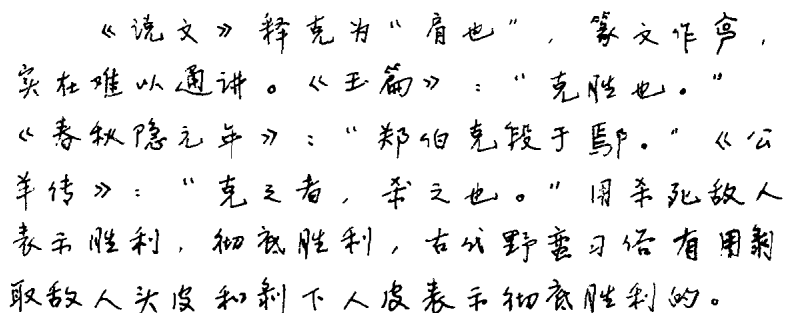 《说文》释克为“肩也”，篆文作，
实在难以通讲。《玉篇》：“克胜也。”
《春秋隐元年》：“郑伯克段于鄢。”《公
羊传》：“克之者，杀之也。”用杀死敌人
表示胜利，彻底胜利，古代野蛮习俗有用剥
取敌人头皮和剥下人皮表示彻底胜利的。